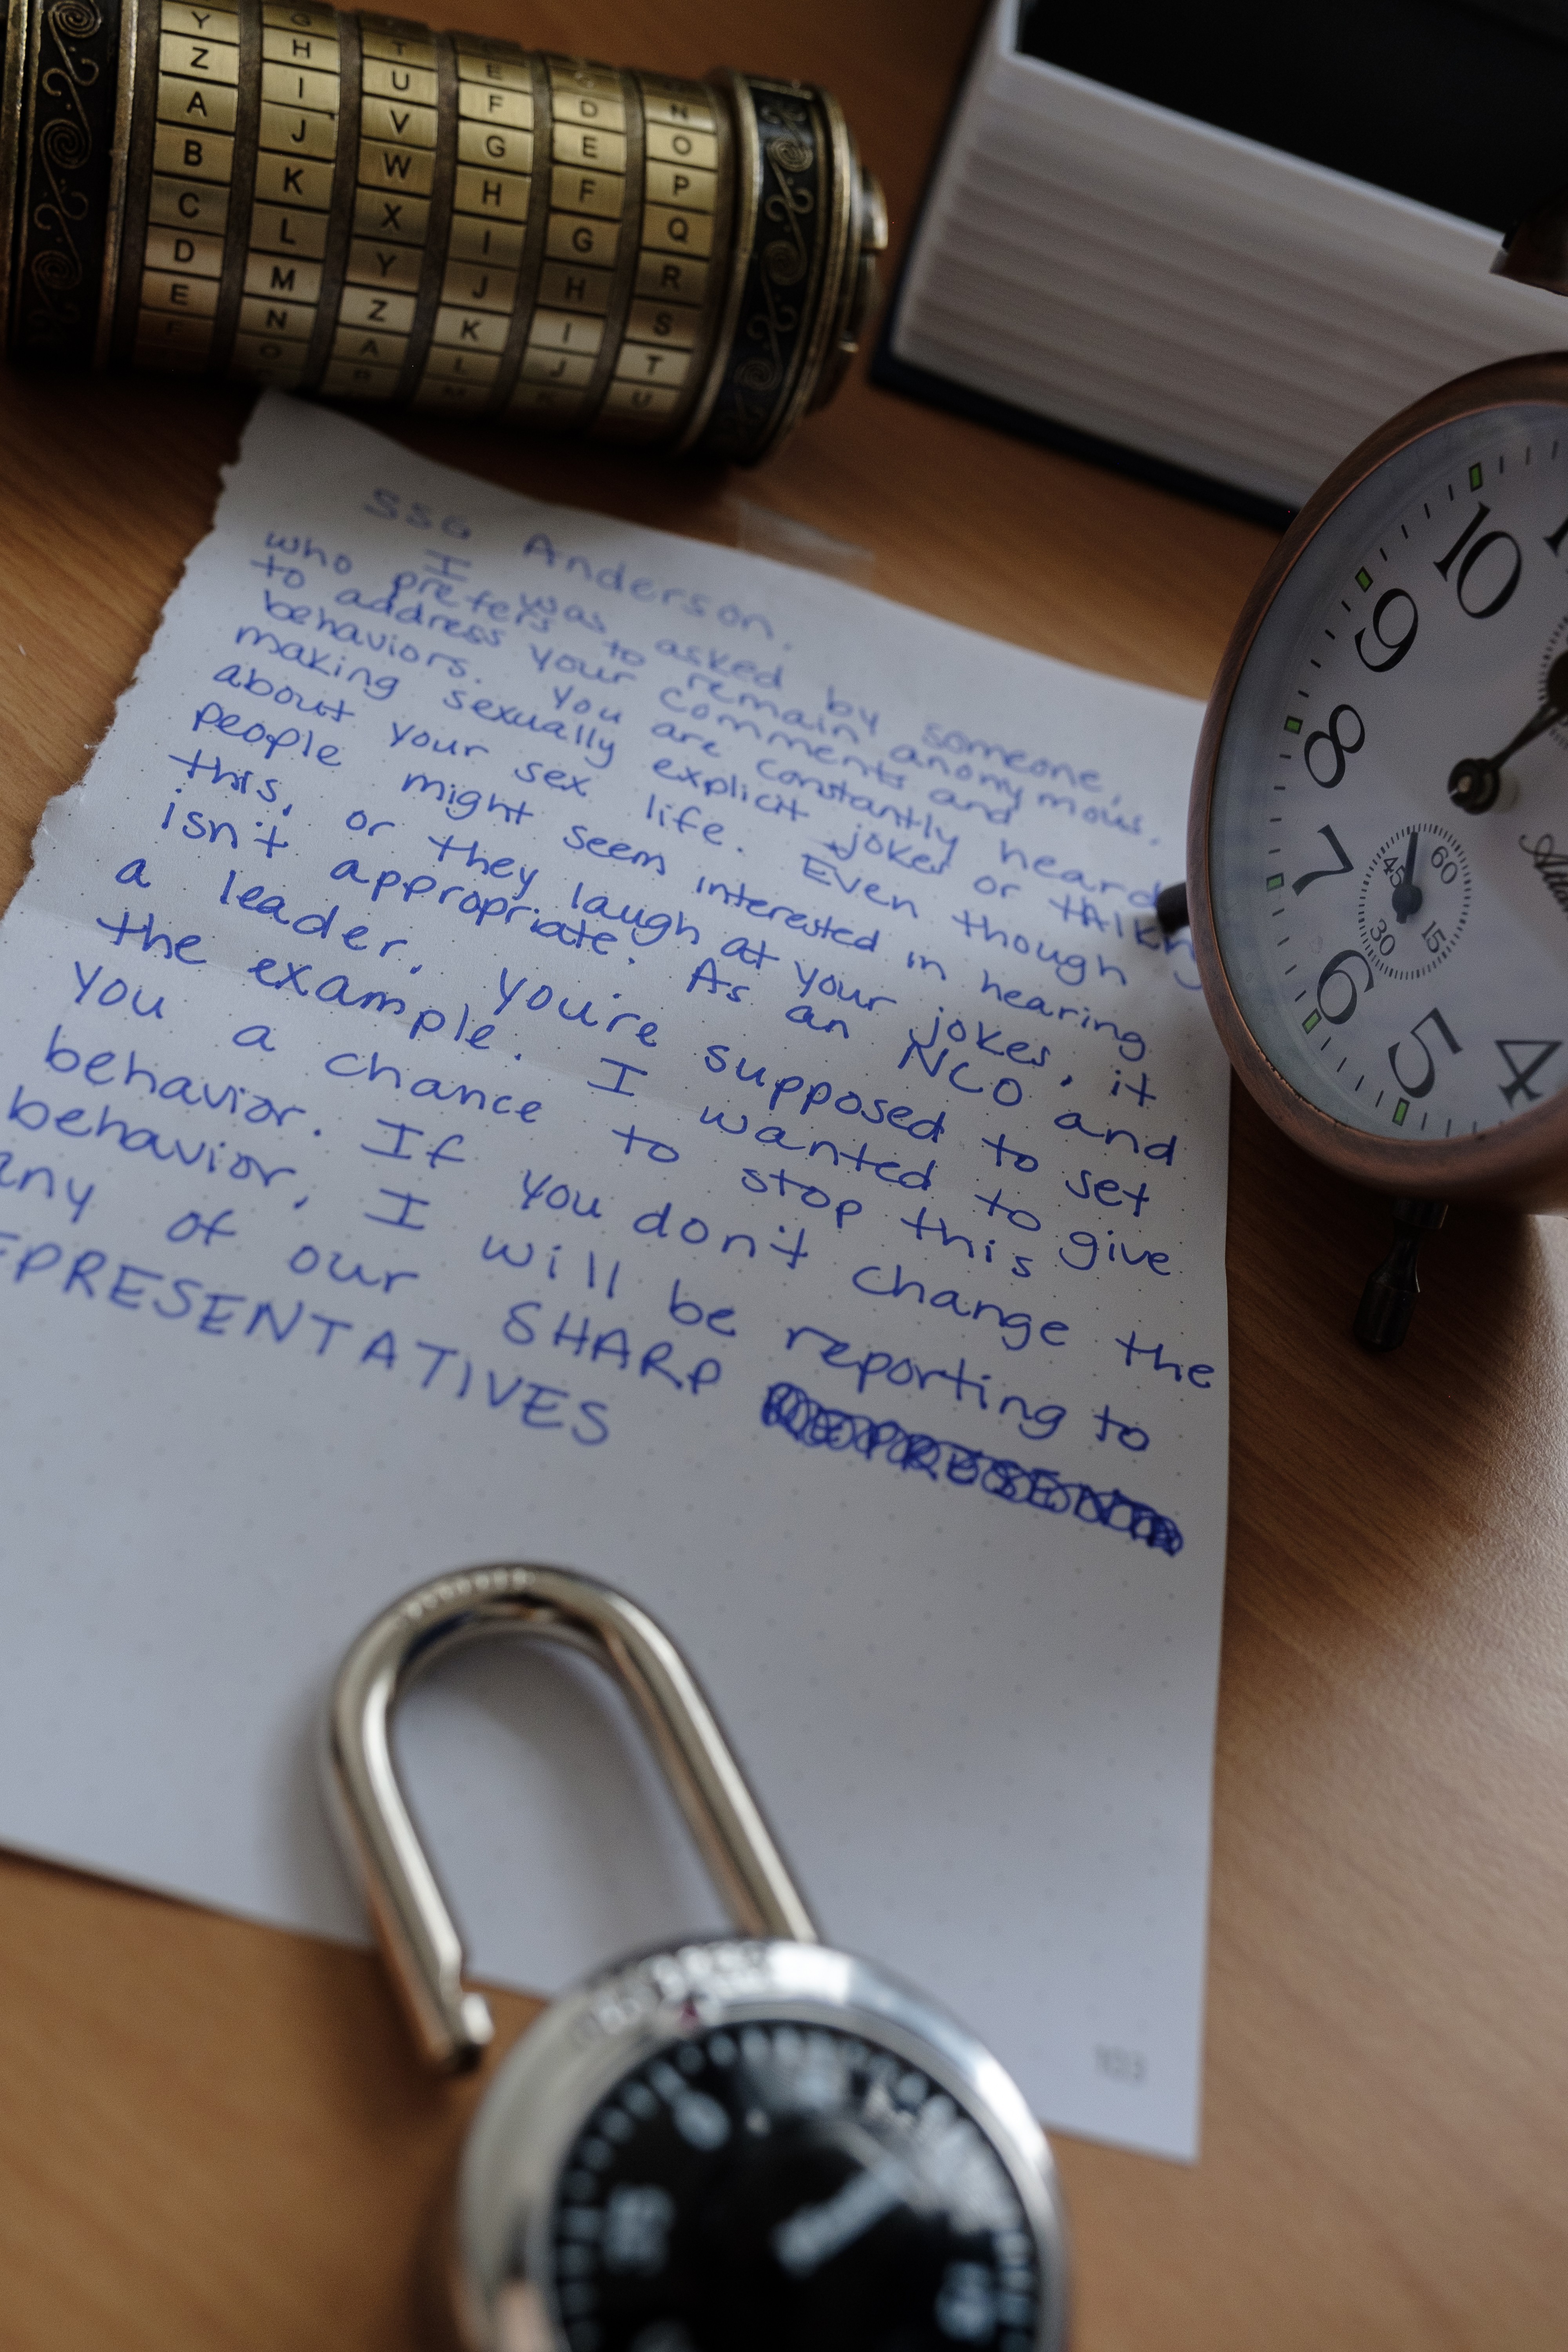 Y G T E
Z H U F D N
A I V G E O
B J W H F P
C K X I G Q
D L Y J H R
E M Z K I S
N A L J T
O M K U
SSG Anderson.
I was asked by someone,
who prefers to remain anonymous,
to address your comments and
behaviors. You are constantly heard
making sexually explicit jokes or tAlking
about your sex life. Even though
people might seem interested in hearing
this, or they laugh at your jokes, it
isn't appropriate. As an NCO and
a leader, you're supposed to set
the example. I wanted to give
you a chance to stop this
behavior. If you don't change the
behavior, I will be reporting to
any of our SHARP REPRESENT
EPRESENTATIVES
10
9
8
7
6
5
4
60
45
30
15
103